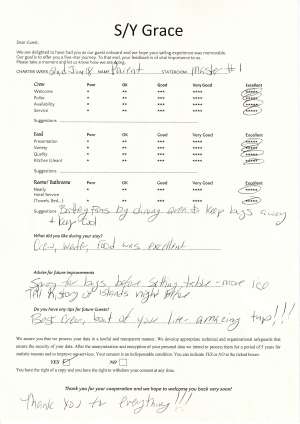 S/Y Grace
Dear Guest,
We are delighted to have had you as our guest onboard and we hope your sailing experience was memorable.
Our goal is to offer you a five-star journey. To that end, your feedback is of vital importance to us.
Please take a moment and let us know how we are doing.
CHARTER WEEK NAME STATEROOM Master #1
Crew Poor OK Good Very Good Excellent
Welcome * ** *** **** *****
Polite * ** *** **** *****
Availability * ** *** **** *****
Service * ** *** **** *****
Suggestions
Food Poor OK Good Very Good Excellent
Presentation * ** *** **** *****
Variety * ** *** **** *****
Quality * ** *** **** *****
Kitchen Clean * ** *** **** *****
Suggestions
Room/ Bathroom Poor OK Good Very Good Excellent
Ready * ** *** **** *****
Hotel Service * ** *** **** *****
(Towels, Bed...)
Suggestions Battery Fans by dining area to keep bugs away
+ keep cool
What did you like during your stay?
Crew, water, food was excellent
Advice for future improvements
Spray for bugs before setting table - more ice
history of islands night before
Do you have any tips for future Guests?
Best crew, boat of your life - amazing trip!!!
We assure you that we process your data in a lawful and transparent manner. We develop appropriate technical and organizational safeguards that
ensure the security of your data. After the anonymization and encryption of your personal data we intend to process them for a period of 5 years for
statistic reasons and to improve our services. Your consent is an indispensable condition. You can indicate YES or NO at the ticked boxes:
YES NO
You have the right of a copy and you have the right to withdraw your consent at any time.
Thank you for your cooperation and we hope to welcome you back very soon!
Thank you for everything!!!